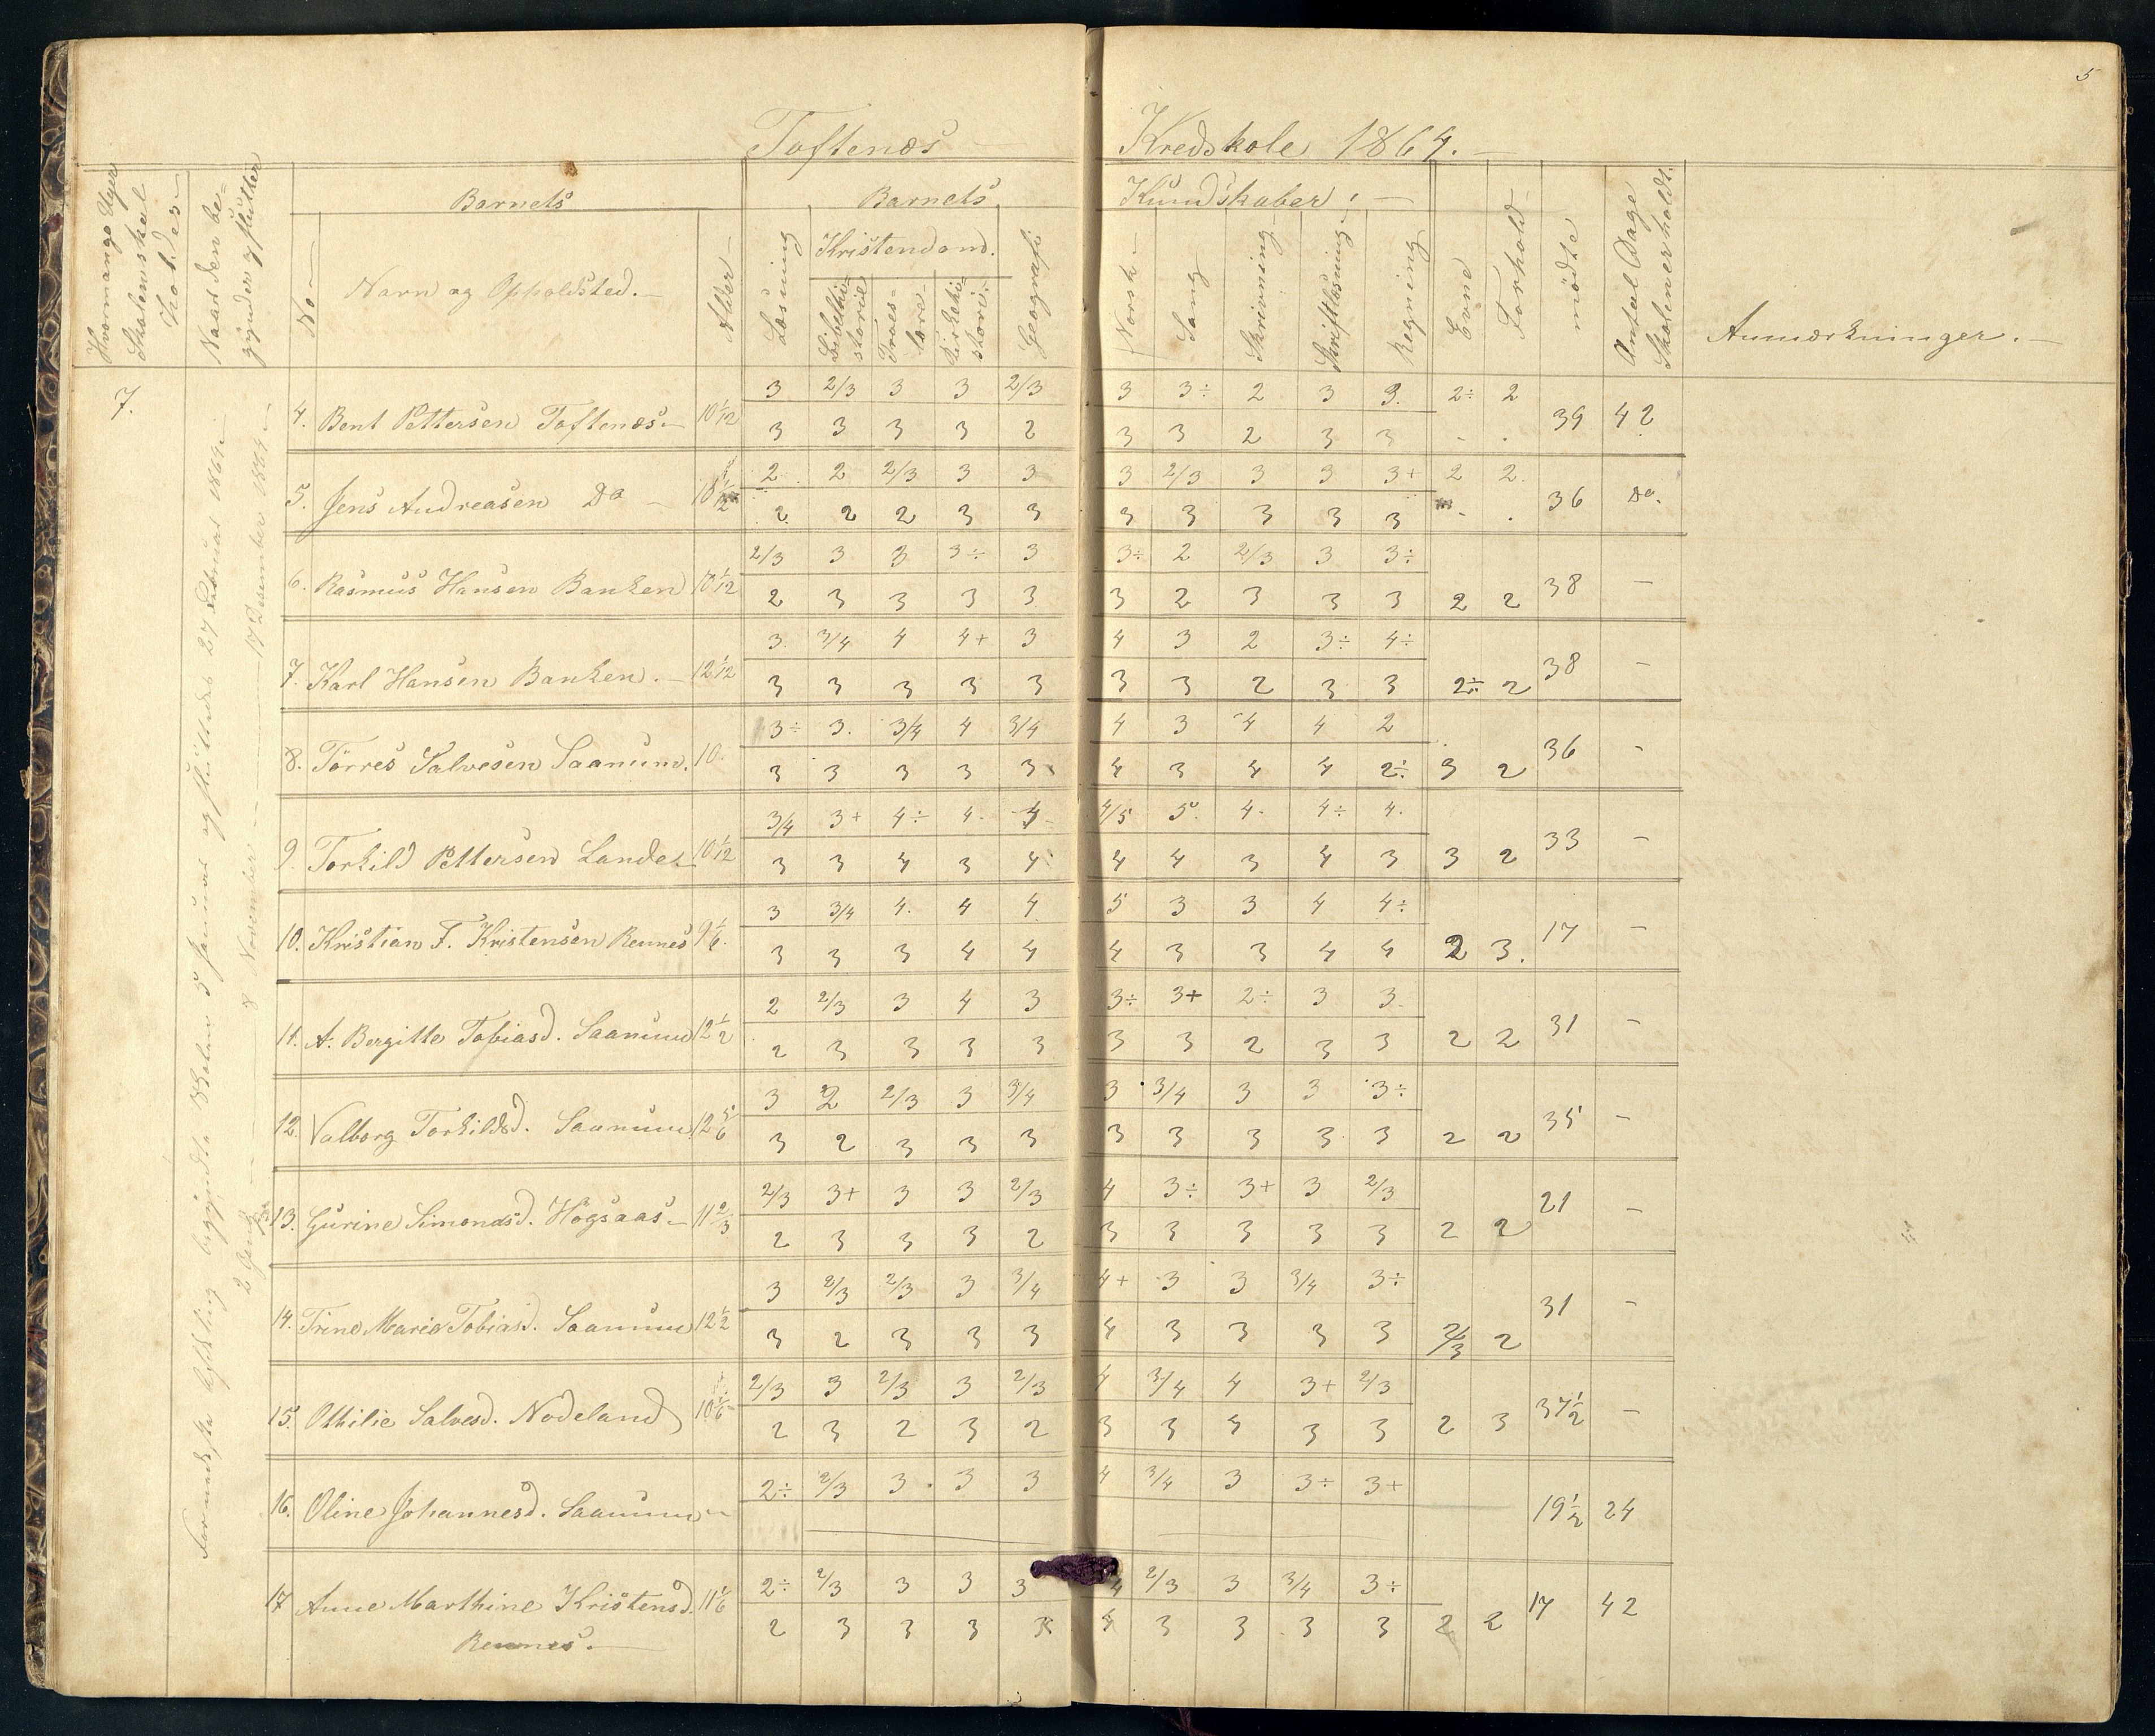 5
Toftenæs Kredskole 1864.
Hvormange Uger Skolen skal holdes
Naar den begynder og slutter
Barnets
No
Navn og Oppoldsted.
Alder
Barnets Kundskaber:
Læsning
Kristendom.
Bibelhistorie
Troeslære
Kirkehistorie
Geografi
Norsk
Sang
Skrivning
Skriftlæsning
Regning
Evne
Forhold
mødte
Antal Dage Skolen er holdt.
Anmærkninger.
7.
begyndte Skolen 5 Januar og sluttede 27 Februar 1864
8 November 17 Desember 1864
4. Bent Pettersen Toftenæs. 10 1/12 3 2/3 3 3 2/3 3 3÷ 2 3 3. 2÷ 2 39 42
3 3 3 3 2 3 3 2 3 3 - .
5. Jens Andreasen Do 2 2 2/3 3 3 3 2/3 3 3 3+ 2 2. 36 Do.
2 2 2 3 3 3 3 3 3 3 - .
6. Rasmus Hansen Banken 10 1/12 2/3 3 3 3÷ 3 3÷ 2 2/3 3 3÷ 38 -
2 3 3 3 3 3 2 3 3 3 2 2
7. Karl Hansen Banken. 12 1/12 3. 3/4 4 4+ 3 4 3 2 3÷ 4÷ 38 -
3 3 3 3 3 3 3 2 3 3 2÷ 2
8. Tørres Salvesen Saanum. 10. 3÷ 3. 3/4 4 3/4 4 3 4 4 2 36 -
3 3 3 3 3 4 3 4 4 2÷ 3 2
9. Torkild Pettersen Lande 10 1/12 3/4 3+ 4÷ 4- 4- 4/5 5. 4- 4÷ 4. 33 -
3 3 4 3 4 4 4 3 4 3 3 2
10. Kristian F. Kristensen Rennes 9 1/6. 3 3/4 4. 4 4 5 3 3 4 4÷ 17 -
3 3 3 4 4 4 3 3 4 4 2 3.
11. A. Bergitte Tobiasd. Saanum 12 1/2 2 2/3 3 4 3 3÷ 3+ 2÷ 3 3. 31 -
2 3 3 3 3 3 3 2 3 3 2 2
12. Valborg Torkildsd. Saanum 12 5/6 3 2 2/3 3 3/4 3 3/4 3 3 3÷ 35 -
3 2 3 3 3 3 3 3 3 3 2 2
13. Gurine Simonsd. Høgsaas. 11 2/3 2/3 3+ 3 3 2/3 4 3÷ 3+ 3 2/3 21 -
2 3 3 3 2 3 3 3 3 3 2 2
14. Trine Marie Tobiasd. Saanum 12 1/2 3 2/3 2/3 3 3/4 4+ 3 3 3/4 3÷ 31 -
3 2 3 3 3 4 3 3 3 3 2/3 2
15. Othilie Salvesd. Nodeland 10 1/6 2/3 3 2/3 3 2/3 4 3/4 4 3+ 2/3 37 1/2 -
2 3 2 3 2 3 3 4 3 3 2 3
16. Oline Johannesd. Saanum 2÷ 2/3 3 3 3 4 3/4 3 3÷ 3+ 19 1/2 24
17 Anne Marthine Kristensd. 11 1/6 2÷ 2/3 3 3 3 4 2/3 3 3/4 3÷ 17 42
Rennes. 2 3 3 3 3 3 3 3 3 2 2